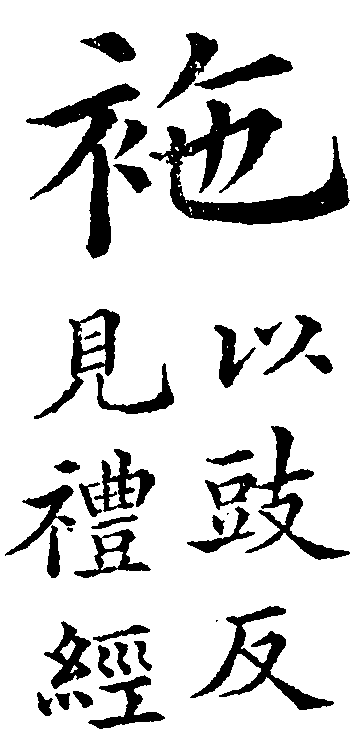 袘
以豉反
見禮經